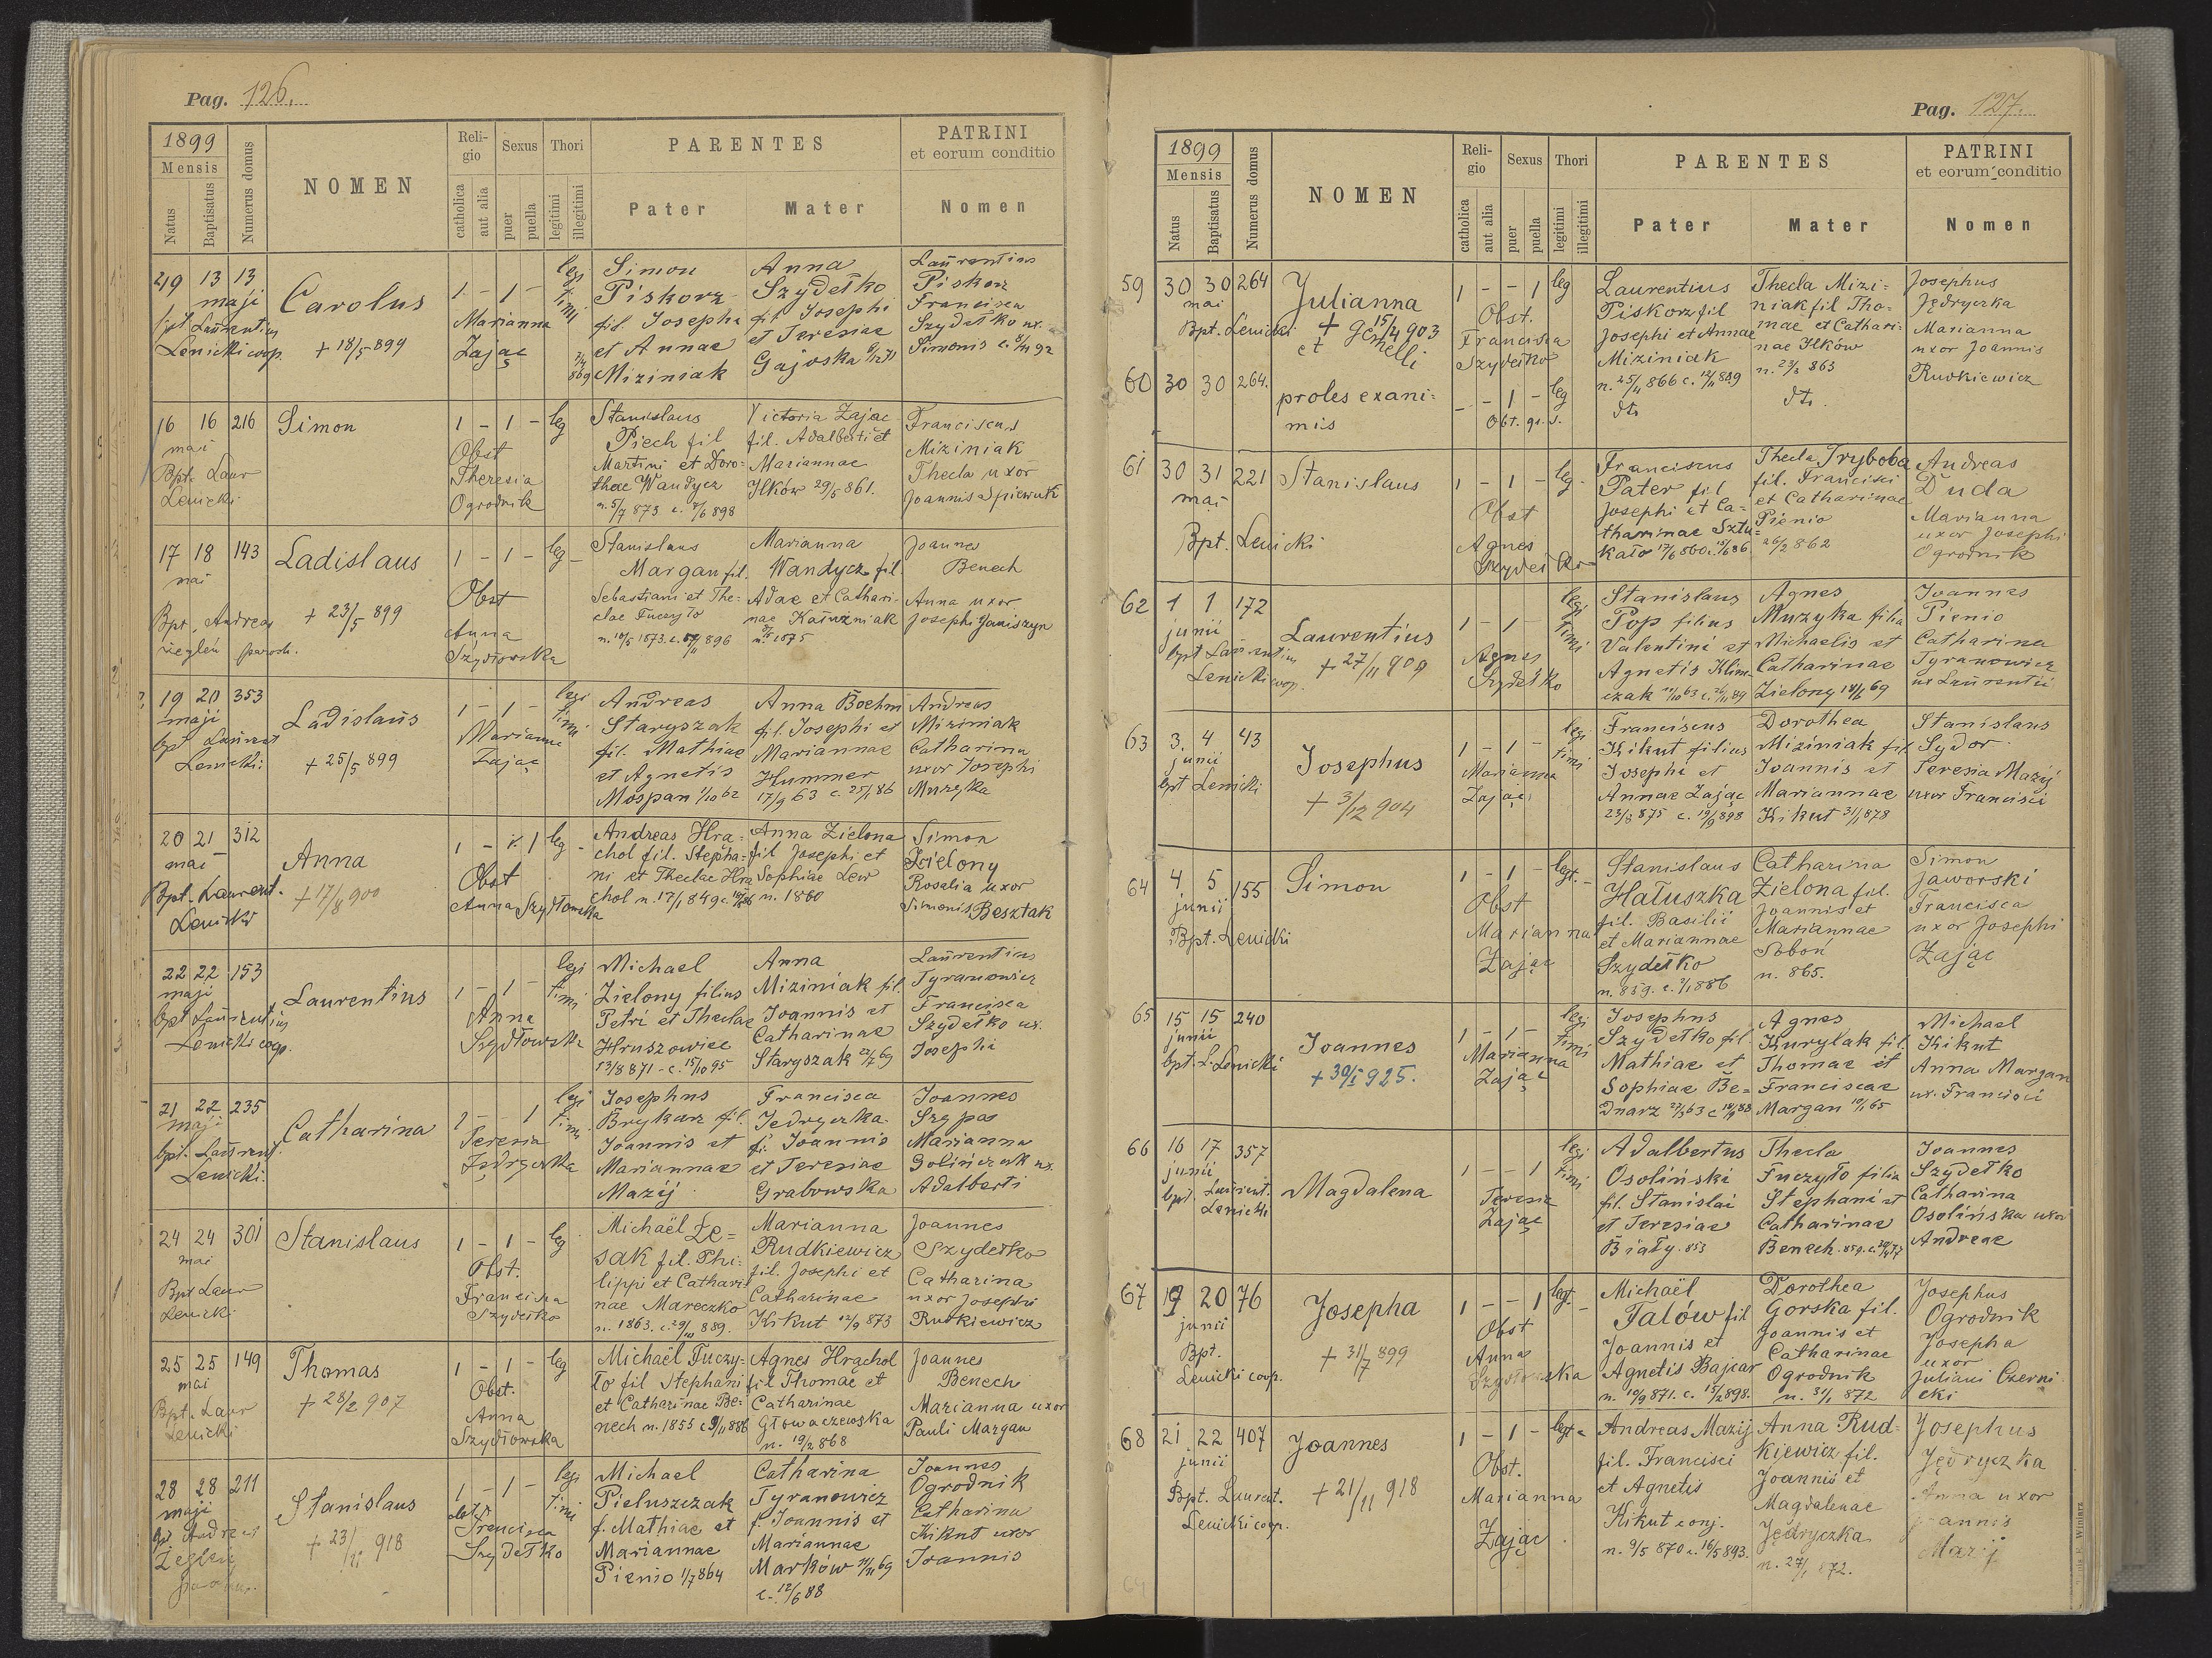 Pag. 126.
1899
Mensis
Natus
Baptisatus
Numerus domus
NOMEN
Religio
catholica
aut alia
Sexus
puer
puella
Thori
legitimi
illegitimi
PARENTES
Pater
Mater
PATRINI
et eorum conditio
Nomen
13 13
maji
bpt Laurentius
Lenicki coop.
Carolus
+ 18/5 899
1 - 1 -
legi
timi
Marianna
Zając
Simon
Piskorz
fil. Josephi
et Annae
Miziniak
Anna
Szydełko
fil Josephi
et Teresiae
Gajoska
Laurentius
Piskorz
Francisca
Szydełko ux.
Simonis
16 16 216
mai
Bpt. Laur
Lenicki
Simon
1 - 1 - leg
Obst
Theresia
Ogrodnik
Stanislaus
Piech fil
Martini et Doro=
theae Wandycz
n. 5/7 873 c. 8/6 898
Victoria Zając
fil. Adalberti et
Mariannae
Ilków 29/5 861.
Franciscus
Miziniak
Thecla uxor
Joannis Spiewak
17 18 143
mai
Bpt. Andreas
Żegleń paroch.
Ladislaus
+ 23/5 899
1 - 1 - leg -
Obst
Anna
Szydłowska
Stanislaus
Margan fil.
Sebastiani et The=
clae Fuczyło
Marianna
Wandycz fil
Adae et Cathari-
nae Kaluzniak
Joannes
Benech
Anna uxor
Josephi Janiszyn
19 20 353
maji
bpt Laurent
Lenicki
Ladislaus
+ 25/5 899
1 - 1 -
legi
timi
Marianna
Zając
Andreas
Staryszak
fil. Mathiae
et Agnetis
Mospan 1/10 62
Anna Boehm
fil. Josephi et
Mariannae
Hummer
17/9 63 c. 25/1 86
Andreas
Miziniak
Catharina
uxor Josephi
Muzyka
20 21 312
mai
Bpt. Laurent.
Lenicki
Anna
+ 17/8 900
1 - 1 leg -
Obst
Anna Szydłowska
Andreas Hra=
chol fil. Stepha=
ni et Theclae Hra
chol n. 17/1 849
Anna Zielona
fil Josephi et
Sophiae Lew
n. 1860
Simon
Zielony
Rosalia uxor
Simonis Besztak
22 22 153
maji
bpt Laurentius
Lenicki coop.
Laurentius
1 - 1 -
legi
timi
Anna
Szydłowska
Michael
Zielony filius
Petri et Theclae
Hruszowiec
13/8 871 - c. 15/10 95
Anna
Miziniak fil.
Joannis et
Catharinae
Staryszak
Laurentius
Tyranowicz
Francisca
Szydełko ux.
Josephi
21 22 235
maji
bpt. Laurent.
Lenicki.
Catharina
1 - - 1
legi
timi
Teresia
Jędryczka
Josephus
Brykarz fil.
Joannis et
Mariannae
Mazij
Francisca
Jedryczka
f. Joannis
et Teresiae
Grabowska
Joannes
Szypas
Marianna
Golińczak ux.
Adalberti
24 24 301
mai
Bpt Laur
Lenicki
Stanislaus
1 - 1 - leg
Obst.
Francisca
Szydełko
Michaël Le=
sak fil. Phi=
lippi et Cathari
nae Mareczko
n. 1863.
Marianna
Rudkiewicz
fil. Josephi et
Catharinae
Kikut 12/9 873
Joannes
Szydełko
Catharina
uxor Josephi
Rudkiewicz
25 25 149
mai
Bpt. Laur
Lenicki
Thomas
+ 28/2 907
1 - 1 - leg
Obst.
Anna
Szydłowska
Michaël Fuczy=
ło fil Stephani
et Catharinae Be=
nech n. 1855
Agnes Hrąchol
fil Thomae et
Catharinae
Głowaczewska
n. 19/2 868
Joannes
Benech
Marianna uxor
Pauli Margan
28 28 211
maji
bpt Andreas
Żegleń
Stanislaus
+ 918
1 - 1 -
legi
timi
obst
Francisca
Szydełko
Michael
Pieluszczak
f. Mathiae et
Mariannae
Pienio 1/7 864
Catharina
Tyranowicz
f. Joannis et
Mariannae
Marków 11/11 69
c. 12/6 88
Joannes
Ogrodnik
Catharina
Kikut uxor
Joannis
Pag. 127.
1899
Mensis
Natus
Baptisatus
Numerus domus
NOMEN
Religio
catholica
aut alia
Sexus
puer
puella
Thori
legitimi
illegitimi
PARENTES
Pater
Mater
PATRINI
et eorum conditio
Nomen
59 30 30 264
mai
Bpt. Lenicki
Julianna
+ 15/4 903
et Gemelli
1 - - 1 leg
Obst.
Francisca
Szydełko
Laurentius
Piskorz fil
Josephi et Annae
Miziniak
n. 25/11 866
Thecla Mizi=
niak fil Tho=
mae et Cathari=
nae Ilków
n. 863
Josephus
Jędryczka
Marianna
uxor Joannis
Rudkiewicz
60 30 30 264.
proles exani=
mis
- - 1 - leg
dto
dto.
61 30 31 221
mai
Bpt. Lenicki
Stanislaus
1 - 1 - leg -
Obst
Agnes
Szydełko
Franciscus
Pater fil
Josephi et Ca=
tharinae Sztu=
kało
Thecla Tryboba
fil. Francisci
et Catharinae
Pienio
26/2 862
Andreas
Duda
Marianna
uxor Josephi
Ogrodnik
62 1 1 172
junii
bpt Laurentius
Lenicki coop.
Laurentius
+ 27/11 900
1 - 1 -
legi
timi
Agnes
Szydełko
Stanislaus
Pop filius
Valentini et
Agnetis Klim
czak
Agnes
Muzyka filia
Michaelis et
Catharinae
Zielony
Joannes
Pienio
Catharina
Tyranowicz
ux Laurentii
63 3. 4 43
junii
bpt Lenicki
Josephus
+ 3/12 904
1 - 1 -
legi
timi
Marianna
Zając
Franciscus
Kikut filius
Josephi et
Annae Zając
Dorothea
Miziniak fil
Joannis et
Mariannae
Kikut 31/1 878
Stanislaus
Sydor
Teresia Mazij
uxor Francisci
64 4 5 155
junii
Bpt. Lenicki
Simon
1 - 1 - legt. -
Obst
Marianna
Zając
Stanislaus
Hałuszka
fil. Basilii
et Mariannae
Szydełko
Catharina
Zielona fil.
Joannis et
Mariannae
Soboń
n. 865.
Simon
Jaworski
Francisca
uxor Josephi
Zając
65 15 15 240
junii
bpt. L. Lenicki
Joannes
+ 30/5 925.
1 - 1 -
legi
timi
Marianna
Zając
Josephus
Szydełko fil.
Mathiae et
Sophiae Be=
dnarz
Agnes
Kurylak fil.
Thomae et
Franciscae
Margan
Michael
Kikut
Anna Margan
ux. Francisci
66 16 17 357
junii
bpt. Laurent.
Lenicki
Magdalena
1 - - 1
legi
timi
Teresia
Zając
Adalbertus
Osoliński
fil. Stanislai
et Teresiae
Biały. 853
Thecla
Fuczyło filia
Stephani et
Catharinae
Benech. 859.
Joannes
Szydełko
Catharina
Osolińska uxor
Andreae
67 19 20 76
junii
Bpt.
Lenicki coop.
Josepha
+ 31/7 899
1 - - 1 legt. -
Obst
Anna
Szydłowska
Michaël
Talów fil
Joannis et
Agnetis Bajcar
n. 10/9 871. c. 15/2 898.
Dorothea
Gorska fil.
Joannis et
Catharinae
Ogrodnik
n. 31/1 872
Josephus
Ogrodnik
Josepha
uxor
Juliani Czerni
cki
68 21 22 407
junii
Bpt. Laurent.
Lenicki coop.
Joannes
+ 21/11 918
1 - 1 - legt -
Obst.
Marianna
Zając
Andreas Mazij
fil. Francisci
et Agnetis
Kikut conj.
n. 9/5 870 c. 16/5 893.
Anna Rud=
kiewicz fil.
Joannis et
Magdalenae
Jędryczka
n. 27/1 872.
Josephus
Jędryczka
Anna uxor
Joannis
Mazij